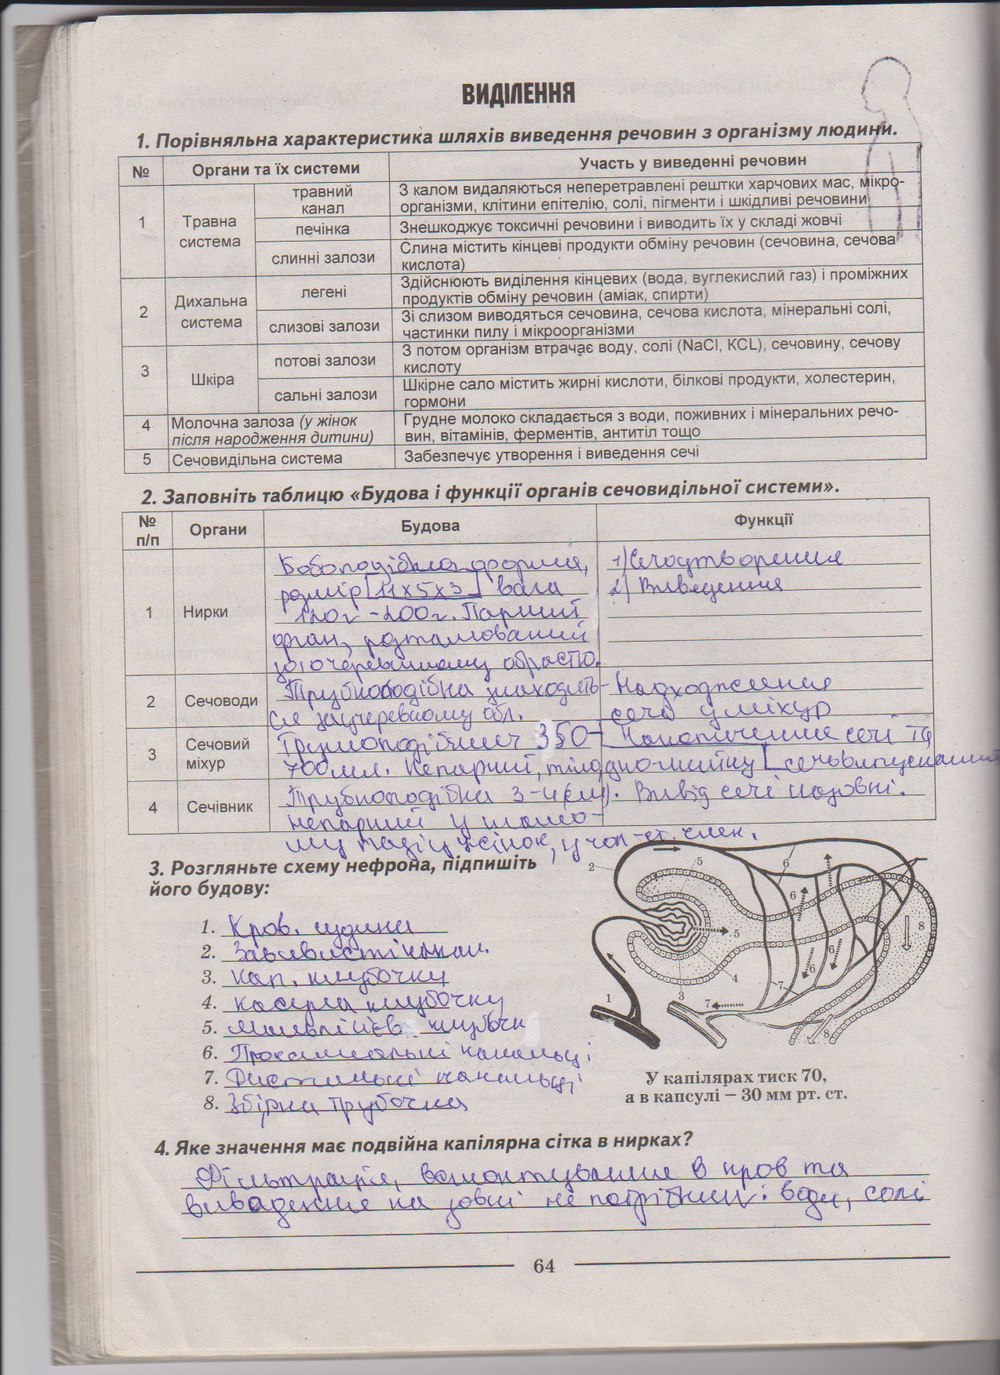 ВИДІЛЕННЯ
1. Порівняльна характеристика шляхів виведення речовин з організму людини.
№ Органи та їх системи Участь у виведенні речовин
1 Травна система травний канал З калом видаляються неперетравлені рештки харчових мас, мікро-
організми, клітини епітелію, солі, пігменти і шкідливі речовини
печінка Знешкоджує токсичні речовини і виводить їх у складі жовчі
слинні залози Слина містить кінцеві продукти обміну речовин (сечовина, сечова
кислота)
2 Дихальна система легені Здійснюють виділення кінцевих (вода, вуглекислий газ) і проміжних
продуктів обміну речовин (аміак, спирти)
слизові залози Зі слизом виводяться сечовина, сечова кислота, мінеральні солі,
частинки пилу і мікроорганізми
3 Шкіра потові залози З потом організм втрачає воду, солі (NaCl, KCL), сечовину, сечову
кислоту
сальні залози Шкірне сало містить жирні кислоти, білкові продукти, холестерин,
гормони
4 Молочна залоза (у жінок після народження дитини) Грудне молоко складається з води, поживних і мінеральних речо-
вин, вітамінів, ферментів, антитіл тощо
5 Сечовидільна система Забезпечує утворення і виведення сечі
2. Заповніть таблицю «Будова і функції органів сечовидільної системи».
№ п/п Органи Будова Функції
1 Нирки Бобоподібна форма, 1) Сечоутворення
розмір 11х5х3 вага 2) Виведення
120г - 200г. Парний
орган, розташований
2 Сечоводи Трубкоподібна знаходить- Надходження
ся зачеревному обл. сечі у міхур
3 Сечовий міхур Грушоподібний 350- Накопичення сечі та
700мл. Непарний, сечовипускання
4 Сечівник Трубкоподібна 3-4 см). Вивід сечі назовні.
непарний у
3. Розгляньте схему нефрона, підпишіть
його будову:
1. Кров. судина
2.
3. Кап. клубочку
4. Капсула клубочку
5. клубочк
6. Проксимальні канальці
7. Дистальні канальці
8. Збірна трубочка
2 5 6 6 6 6 5 4 3 7 7 1 8 8
У капілярах тиск 70,
а в капсулі – 30 мм рт. ст.
4. Яке значення має подвійна капілярна сітка в нирках?
Фільтрація, всмоктування в кров та
виведення на зовні не потрібних: води, солі
64